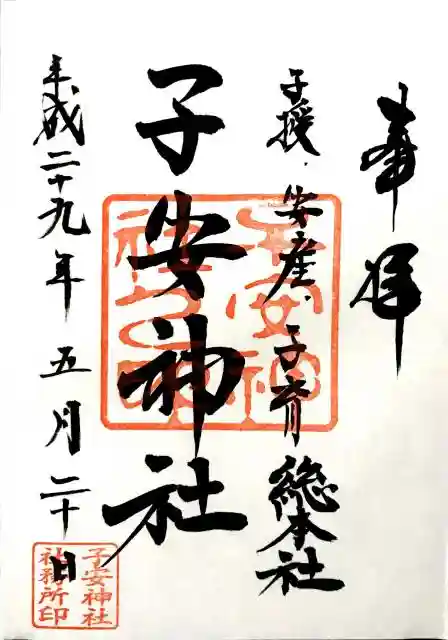 奉拝
子授・安産・子育 総本社
子安神社
平成二十九年五月二十日
子安神社
社務所印